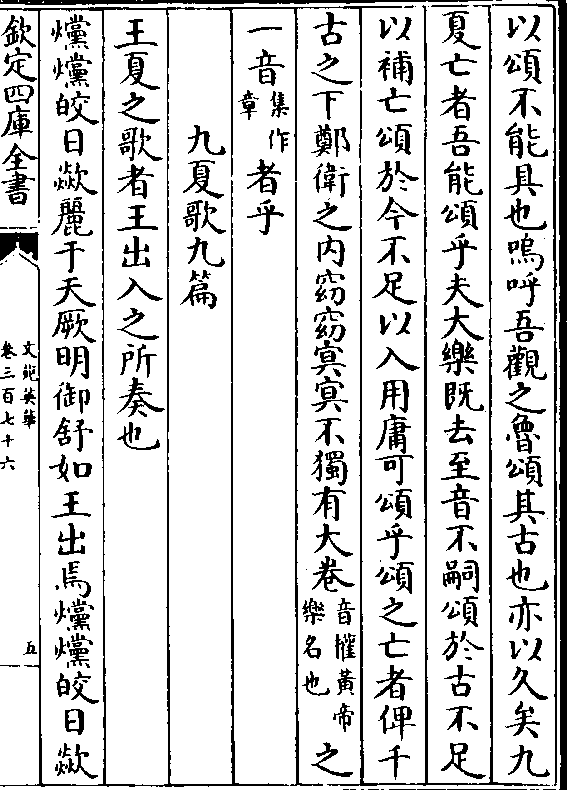 以頌不能具也嗚呼吾觀之魯頌其古也亦以久矣九
夏亡者吾能頌乎夫大樂既去至音不嗣頌於古不足
以補亡頌於今不足以入用庸可頌乎頌之亡者俾千
古之下鄭衛之內窈窈冥冥不獨有大卷音權黃帝樂名也之
一音集作章者乎
九夏歌九篇
王夏之歌者王出入之所奏也
爣爣皎日歘麗于天厥明御舒如王出焉爣爣皎日歘
欽定四庫全書
文苑英華
卷三百七十六
五